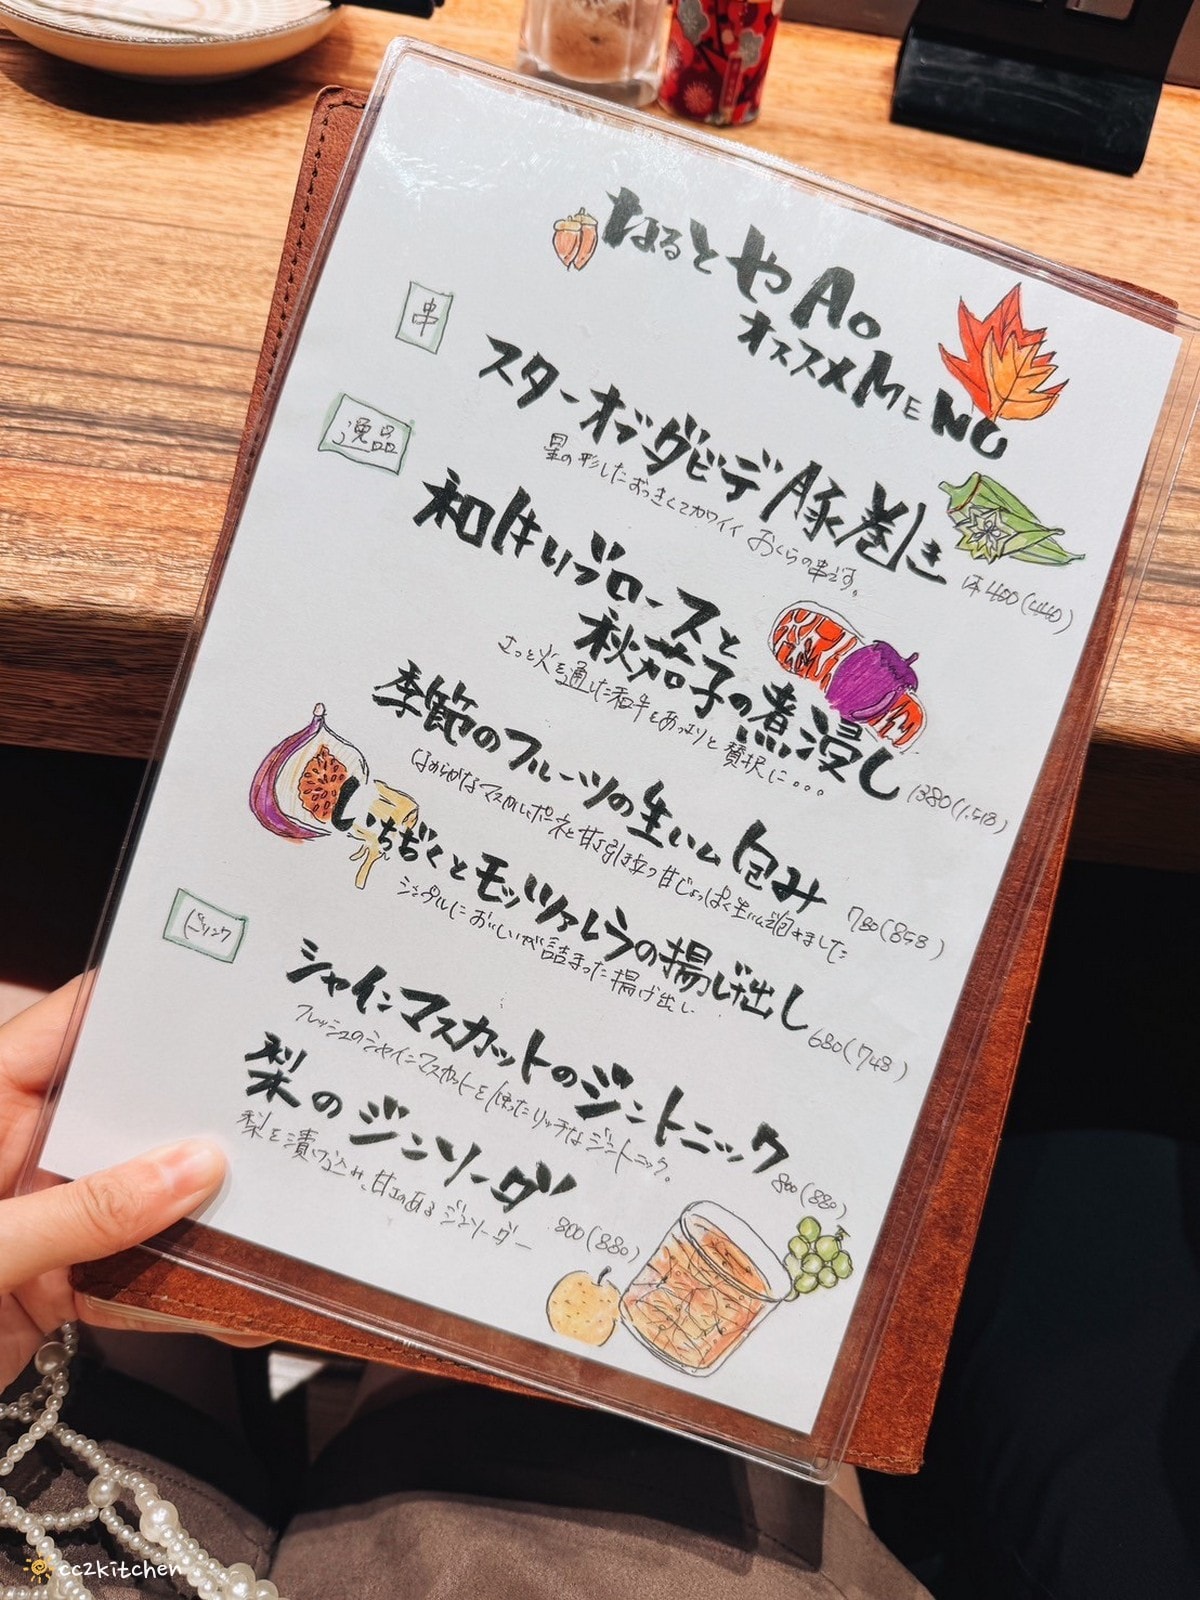 なるとやAo
オススメMENU
串
スターオブダビデ豚巻き
星の形したおっきくてカワイイ おくらの串です。
1本400(440)
逸品
和牛リブロースと
秋茄子の煮浸し
さっと火を通した和牛をあっさりと贅沢に。。。
1380(1.518)
季節のフルーツの生ハム包み
なめらかなマスカルポーネと甘さ引き立つ甘じょっぱく生ハムで包みました
780(858)
いちぢくとモッツァレラの揚げ出し
シンプルにおいしいが詰まった揚げ出し
680(748)
ドリンク
シャインマスカットのジントニック
フレッシュのシャインマスカットを使ったリッチなジントニック。
800(880)
梨のジンソーダ
梨を漬け込み、甘さのあるジンソーダー
800(880)
cc2kitchen